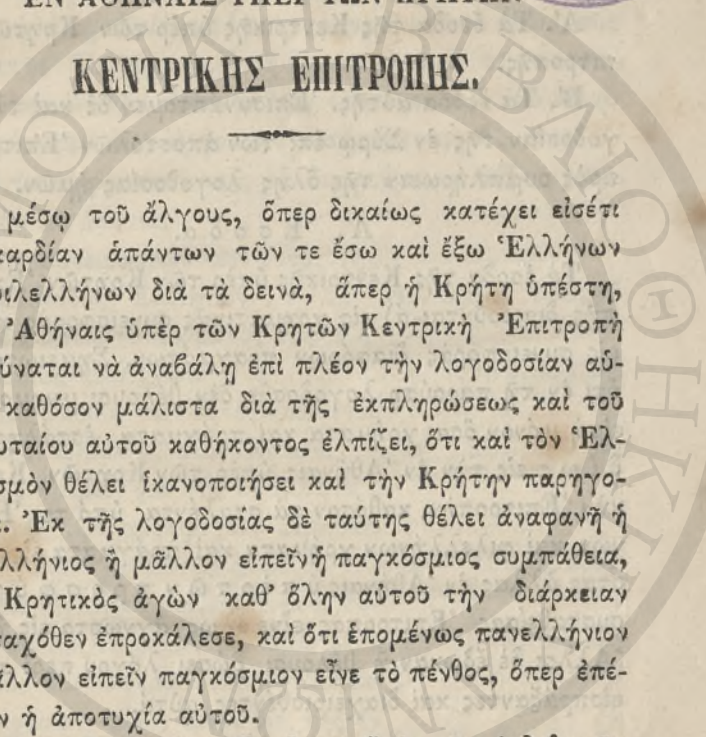 ΕΝ ΑΘΗΝΑΙΣ ΥΠΕΡ ΤΩΝ ΚΡΗΤΩΝ
ΚΕΝΤΡΙΚΗΣ ΕΠΙΤΡΟΠΗΣ.
μέσῳ τοῦ ἄλγους, ὅπερ δικαίως κατέχει εἰσέτι
καρδίαν ἁπάντων τῶν τε ἔσω καὶ ἔξω Ἑλλήνων
ιλελλήνων διὰ τὰ δεινὰ, ἅπερ ἡ Κρήτη ὑπέστη,
Ἀθήναις ὑπὲρ τῶν Κρητῶν Κεντρικὴ Ἐπιτροπὴ
ύναται νὰ ἀναβάλῃ ἐπὶ πλέον τὴν λογοδοσίαν αὑ-
καθόσον μάλιστα διὰ τῆς ἐκπληρώσεως καὶ τοῦ
υταίου αὐτοῦ καθήκοντος ἐλπίζει, ὅτι καὶ τὸν Ἑλ-
σμὸν θέλει ἱκανοποιήσει καὶ τὴν Κρήτην παρηγο-
. Ἐκ τῆς λογοδοσίας δὲ ταύτης θέλει ἀναφανῆ ἡ
λλήνιος ἢ μᾶλλον εἰπεῖν ἡ παγκόσμιος συμπάθεια,
Κρητικὸς ἀγὼν καθ' ὅλην αὑτοῦ τὴν διάρκειαν
ταχόθεν ἐπροκάλεσε, καὶ ὅτι ἑπομένως πανελλήνιον
ᾶλλον εἰπεῖν παγκόσμιον εἶνε τὸ πένθος, ὅπερ ἐπέ-
ν ἡ ἀποτυχία αὐτοῦ.